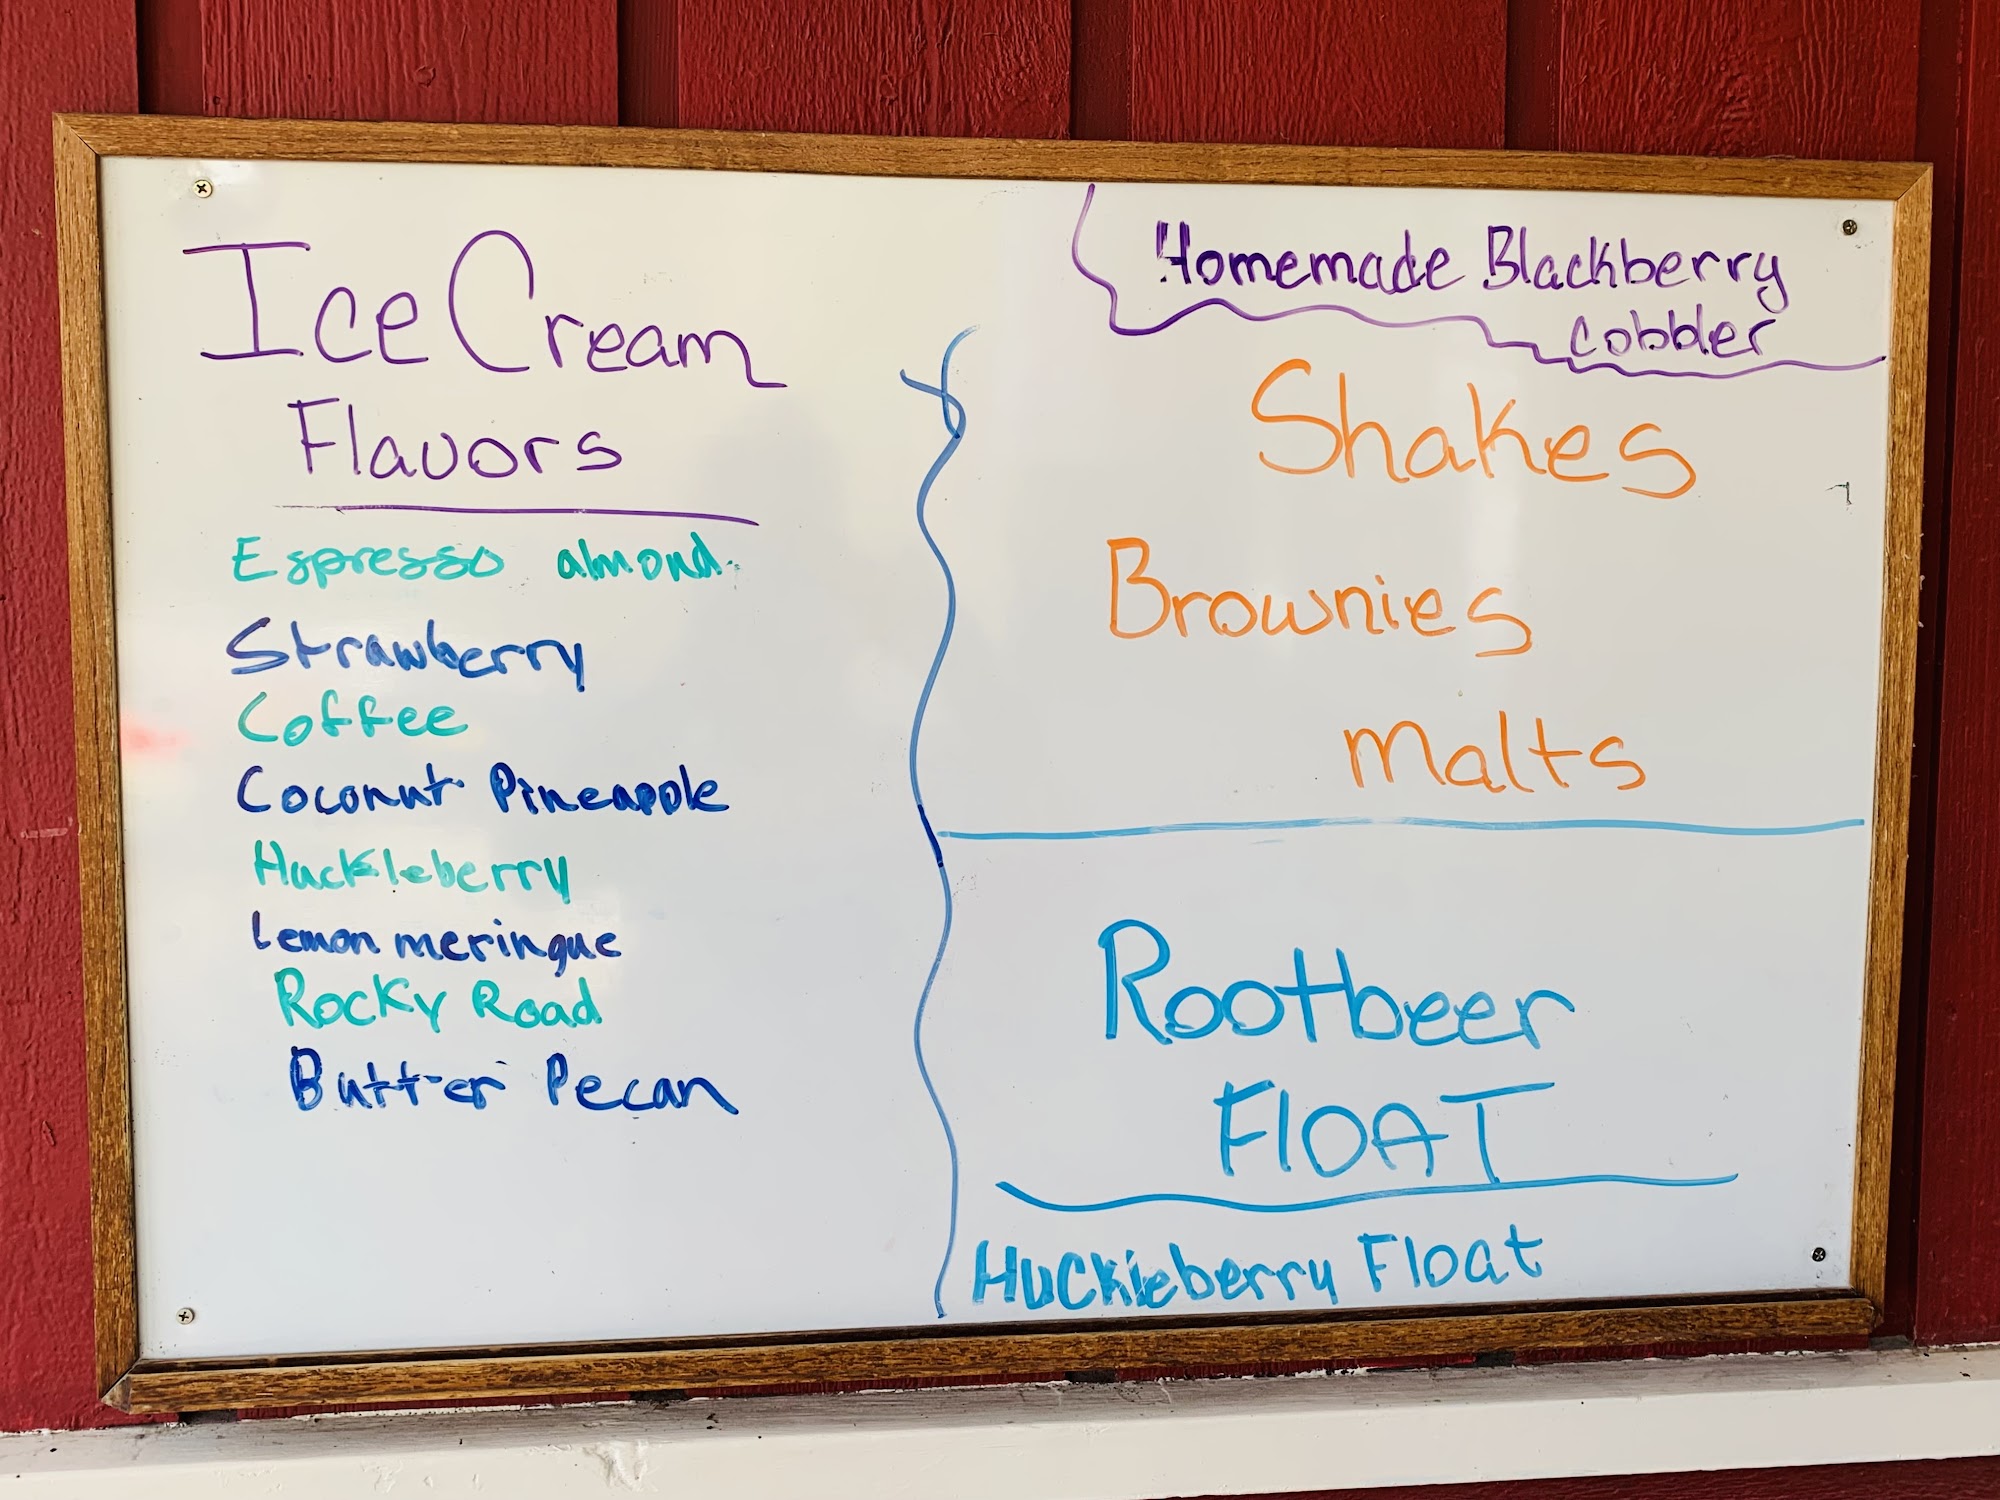 Ice Cream
Flavors
Espresso almond
Strawberry
Coffee
Coconut Pineapple
Huckleberry
Lemon meringue
Rocky Road
Butter Pecan
Homemade Blackberry
cobbler
Shakes
Brownies
malts
Rootbeer
FlOAT
Huckleberry Float